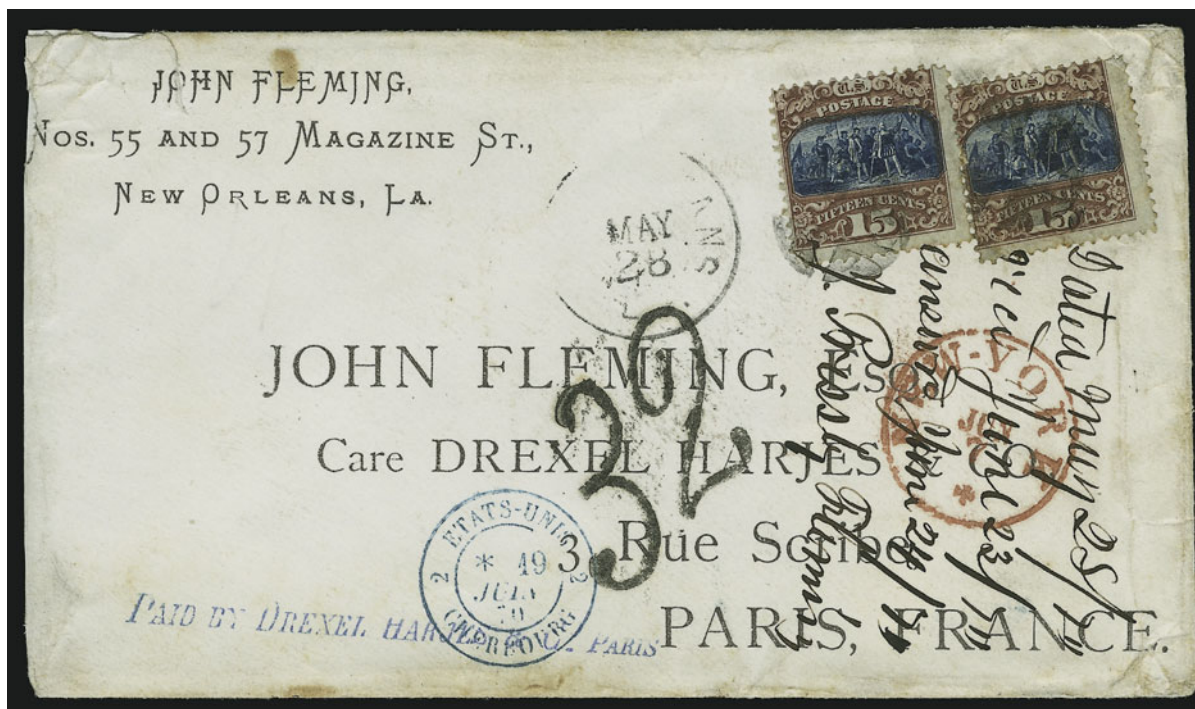 JOHN FLEMING,
NOS. 55 AND 57 MAGAZINE ST.,
NEW ORLEANS, LA.
U.S.
POSTAGE
FIFTEEN CENTS
15
U.S.
POSTAGE
FIFTEEN CENTS
15
ANS
MAY
28
JOHN FLEMING, ESQ.
Care DREXEL HARJES & CO.
3, Rue Scribe
PARIS, FRANCE.
32
NEW-YORK
ETATS-UNIS
2 * 19 2
JUIN
70
CHERBOURG
PAID BY DREXEL HARJES & Co. PARIS
Dated May 28/70
June 23/70
June 24/70
Fleming